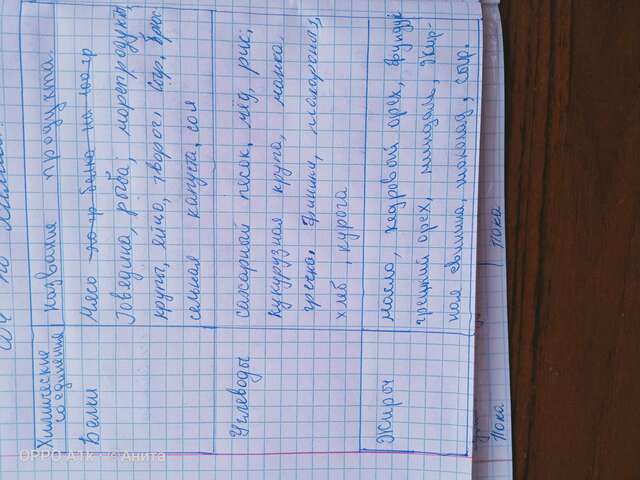 СОЧ по
Химические соединения
Название продукта
Белки
Мясо 20 гр белка на 100 гр
Говядина, рыба, морепродукты,
крупы, яйцо, творог, Сыр, Брюс-
сельная капуста, соя
Углеводы
сахарный песок, мёд, рис,
кукурузная крупа, манка
гречка, финики, макароны,
хлеб, курага
Жиры
масло, кедровый орех, фундук
грецкий орех, миндаль, жир-
ная свинина, шоколад, сыр.
Пока
Пока
OPPO A1K • Анита